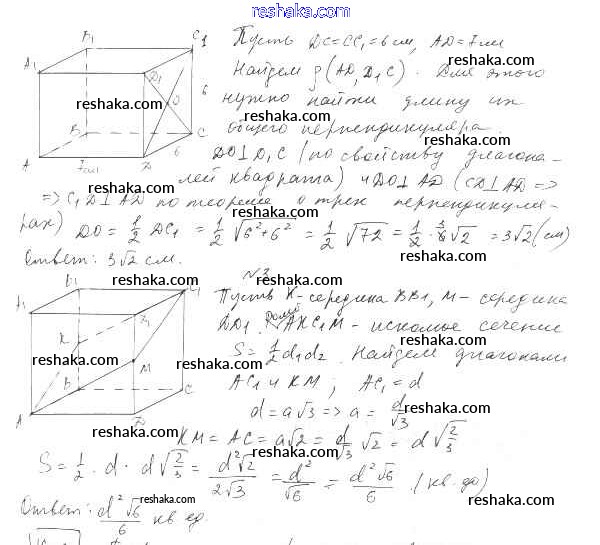 reshaka.com
Пусть DC=CC₁=6 см, AD=7 см
Найдем ρ(AD, D₁C). Для этого
нужно найти длину их
общего перпендикуляра.
DO⊥D₁C (по свойству диагона-
лей квадрата) и DO⊥AD (CD⊥AD =>
=> C₁D⊥AD по теореме о трех перпендикуля-
рах) DO = 1/2 DC₁ = 1/2 √6²+6² = 1/2 √72 = 1/2 · 6√2 = 3√2 (см)
Ответ: 3√2 см.
A₁ B₁ C₁ D₁ O 6
A B C D 7см 6
N3
Пусть K-середина BB₁, M-середина
DD₁. Ромб AKC₁M - искомое сечение
S = 1/2 d₁d₂. Найдем диагонали
AC₁ и KM; AC₁ = d
d = a√3 => a = d/√3
KM = AC = a√2 = d/√3 √2 = d√2/3
S = 1/2 · d · d√2/3 = d²√2/2√3 = d²/√6 = d²√6/6 (кв. ед)
Ответ: d²√6/6 кв ед.
K M A B C D
reshaka.com
reshaka.com
reshaka.com
reshaka.com
reshaka.com
reshaka.com
reshaka.com
reshaka.com
reshaka.com
reshaka.com
reshaka.com
reshaka.com
reshaka.com
reshaka.com